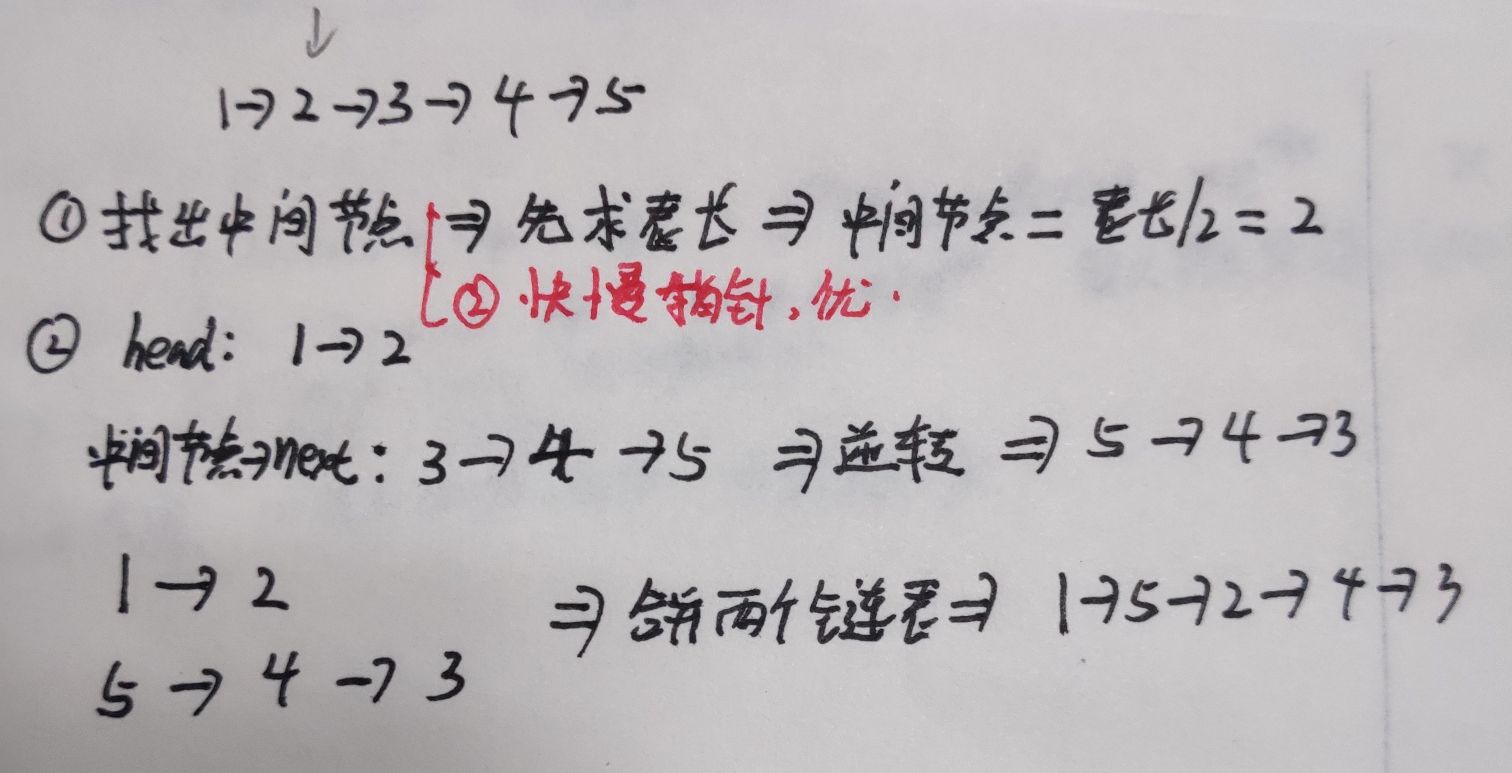 ↓
1→2→3→4→5
①找出中间节点⇒先求表长⇒中间节点=表长/2=2
②快慢指针,优.
② head: 1→2
中间节点→next: 3→4→5 ⇒逆转⇒5→4→3
1→2
5→4→3
⇒合并两个链表⇒1→5→2→4→3